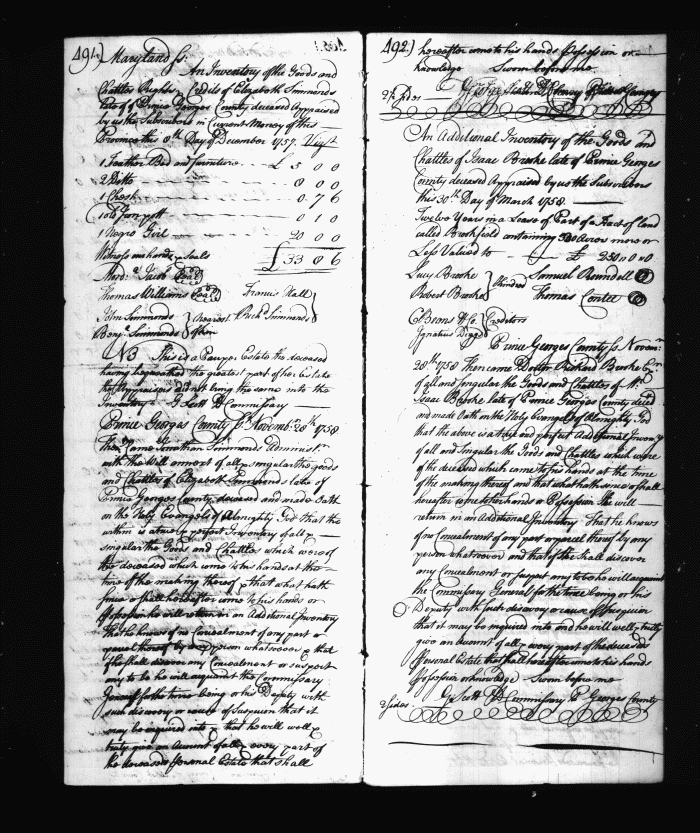 491.) Maryland ss.
An Inventory of the Goods and
Chattles Rights Credits of Elizabeth Simmonds
late of Prince Georges County deceased Appraised
by us the Subscribers in Current Money of this
Province this 8th Day of December 1757. Vizt
1 Feather Bed and furniture £ 5 0 0
2 Ditto 8 0 0
1 Chest 0 7 6
1 old Iron pott 0 1 0
1 Negro Girl 20 0 0
Witness our hands & Seals £ 33 8 6
Thomas Williams Francis Hall
John Simmonds Nearest Simmonds
Benja Simmonds of kin
NB This is a Pauper Estate the deceased
having bequeathed the greatest part of her Estate
the Appraisers did not bring the same into the
Inventory J. Scott D Commissary
Prince Georges County ss. Novembr 28th 1758
Then Came Jonathan Simmonds Administr
with the Will annext of all & singular the goods
and Chattles of Elizabeth Simmonds late of
Prince Georges County deceased and made Oath
on the Holy Evangels of Almighty God that the
within is a true & perfect Inventory of all &
singular the Goods and Chattles which were of
the deceased which came to his hands at the
time of the making thereof & that what hath
since or shall hereafter come to his hands or
Possession he will return in an Additional Inventory
that he knows of no Concealment of any part or
parcel thereof by any person whatsoever & that
if he shall discover any Concealment or suspect
any to be he will acquaint the Commissary
General for the time being or his Deputy with
such discovery or cause of Suspicion that it
may be inquired into & that he will well &
truly give an Account of all & every part of
the deceaseds Personal Estate that shall
492.) hereafter come to his hands Possession or
knowledge Sworn before me
An Additional Inventory of the Goods and
Chattles of Isaac Brooke late of Prince Georges
County deceased Appraised by us the Subscribers
this 30th Day of March 1758.
Twelve Years in a Lease of Part of a Tract of land
called Brookfield containing 500 Acres more or
Less Valued to £ 250 0 0
Lucy Brooke Samuel Roundell
Robert Brooke Kindred Thomas Contee
C Beans & Co. Creditors
Ignatius Digges
Prince Georges County ss. Novemr
28th 1758 Then came Doctor Richard Brooke Exr
of all and singular the Goods and Chattles of Mr
Isaac Brooke late of Prince Georges County deced
and made Oath on the Holy Evangels of Almighty God
that the above is a true and perfect Additional Inventry
of all and Singular the Goods and Chattles which were
of the deceased which came to his hands at the time
of the making thereof and that what hath since or shall
hereafter come to his hands or Possession he will
return in an Additional Inventory That he knows
of no Concealment of any part or parcel thereof by any
person whatsoever and that if he shall discover
any Concealment or suspect any to be he will acquaint
the Commissary General for the time being or his
Deputy with such discovery or cause of Suspicion
that it may be inquired into and he will well & truly
give an Account of all & every part of the deceaseds
Personal Estate that shall hereafter come to his hands
Possession or knowledge Sworn before me
2 Sides. Scott D Commissary Pr Georges County